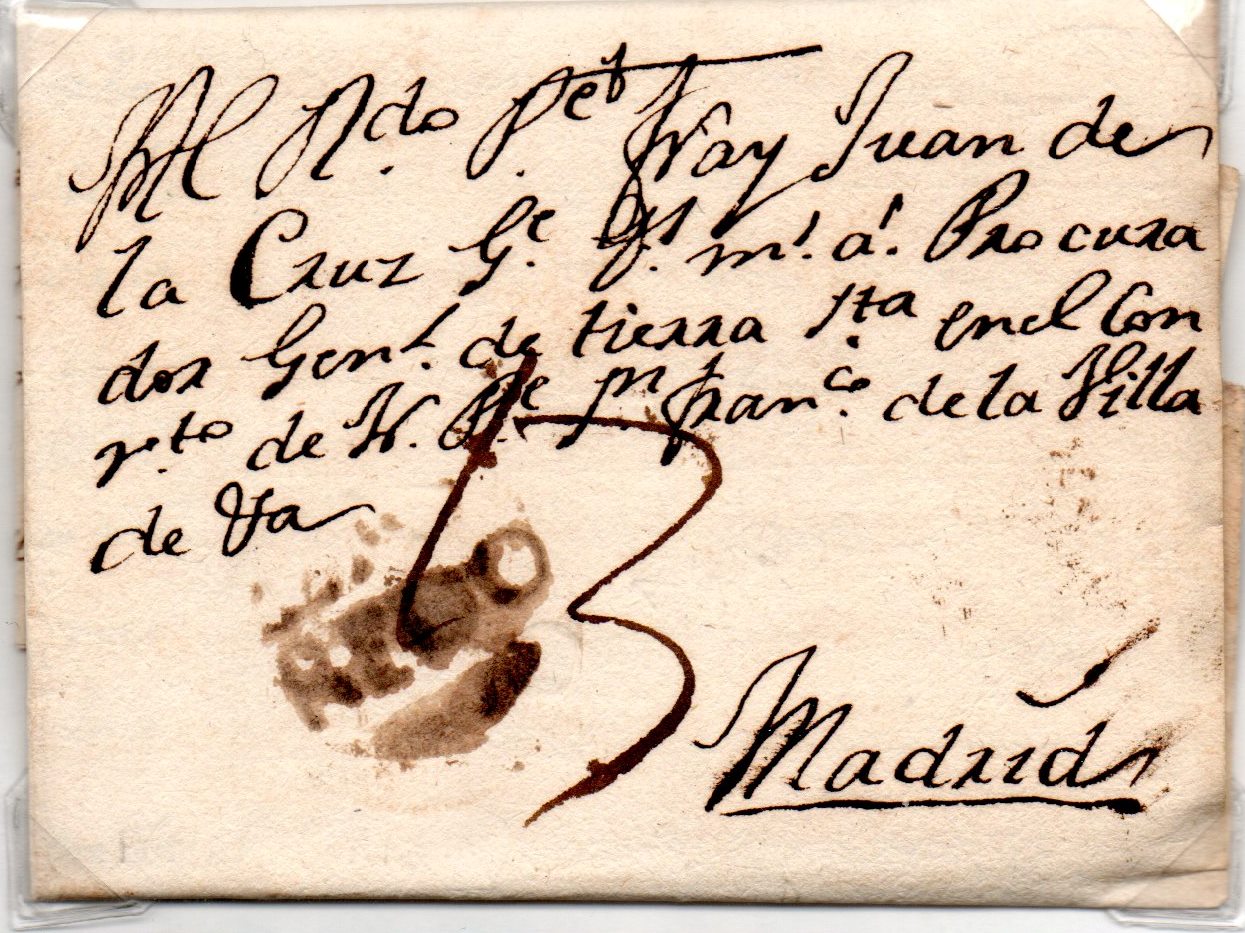 Al Rdo. Pe. Fray Juan de
la Cruz Ge. gs. ms. as. Procura
dor Genl. de tierra Sta en el Con
vto de N. Pe. Sn Franco. de la Villa
de Va
13
Madrid